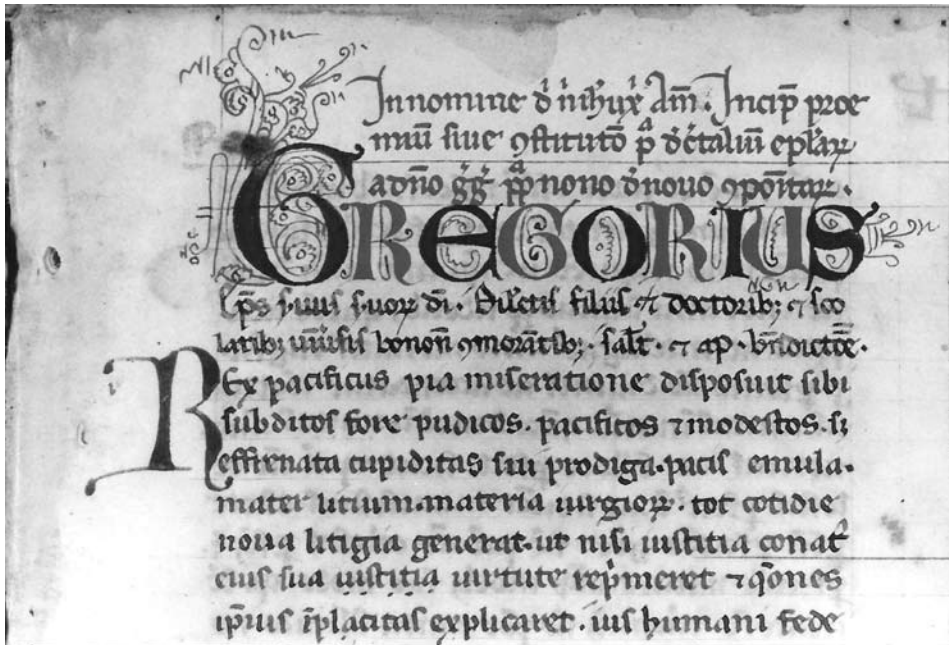 In nomine d̄ n̄ ih̓u xp̄i Am̄. Incip̄ proe
miū siue ꝯstitutō p̄ d̓c̄taliū ep̄l̓aꝝ
a dn̄o ḡḡ pp̄ nono d̓nouo ꝯpōītaꝝ.
GREGORIUS
Ep̄s s̓uus s̓uoꝝ dī. Dil̓ctis filiis ⁊ doctorib; ⁊ sco
larib; uniu̓sis bonoñ ꝯmorātib;. sal̓t. ⁊ ap̄. bn̄dictōē.
REx pacificus pia miseratione disposuit sibi
subditos fore pudicos. pacificos ⁊ modestos. sꝫ
effrenata cupiditas sui prodiga. pacis emula.
mater litium. materia iurgioꝝ. tot cotidie
noua litigia generat. ut nisi iustitia conat᷑
eius sua iustitia uirtute rep̓meret ⁊ q̄ones
ip̄ius īplacitas explicaret. ius humani fede